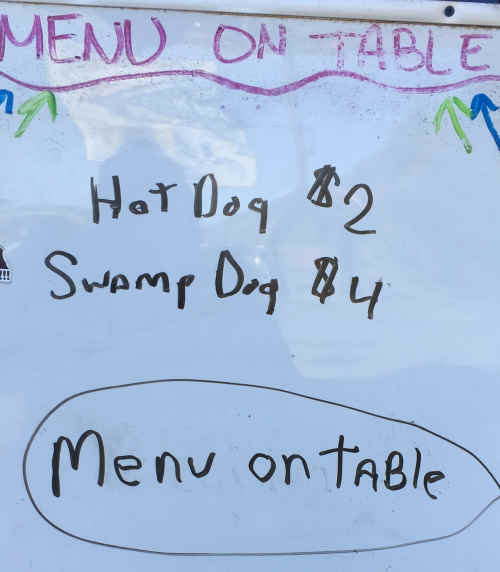 MENU ON TABLE
Hot Dog $2
Swamp Dog $4
Menu on TABle